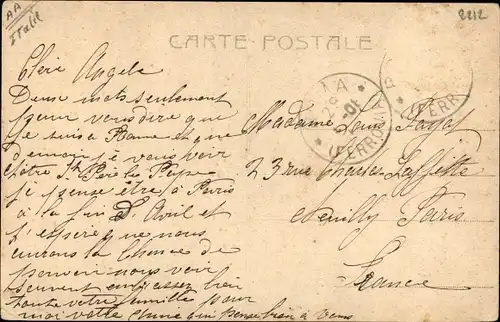 AA
Italie
2212
CARTE POSTALE
Chère Angele
Deux mots seulement
pour vous dire que
je suis a Rome et que
demain je vais voir
Notre St Père Le Pape
je pense être à Paris
à la fin d'Avril et
j'espère que nous
aurons la chance de
pouvoir nous voir
souvent embrassez bien
toute votre famille pour
moi votre amie qui pense bien à vous
Madame Louis
23 rue Chauveau Laffitte
Neuilly Paris
France
MA
(FERR
(FERR